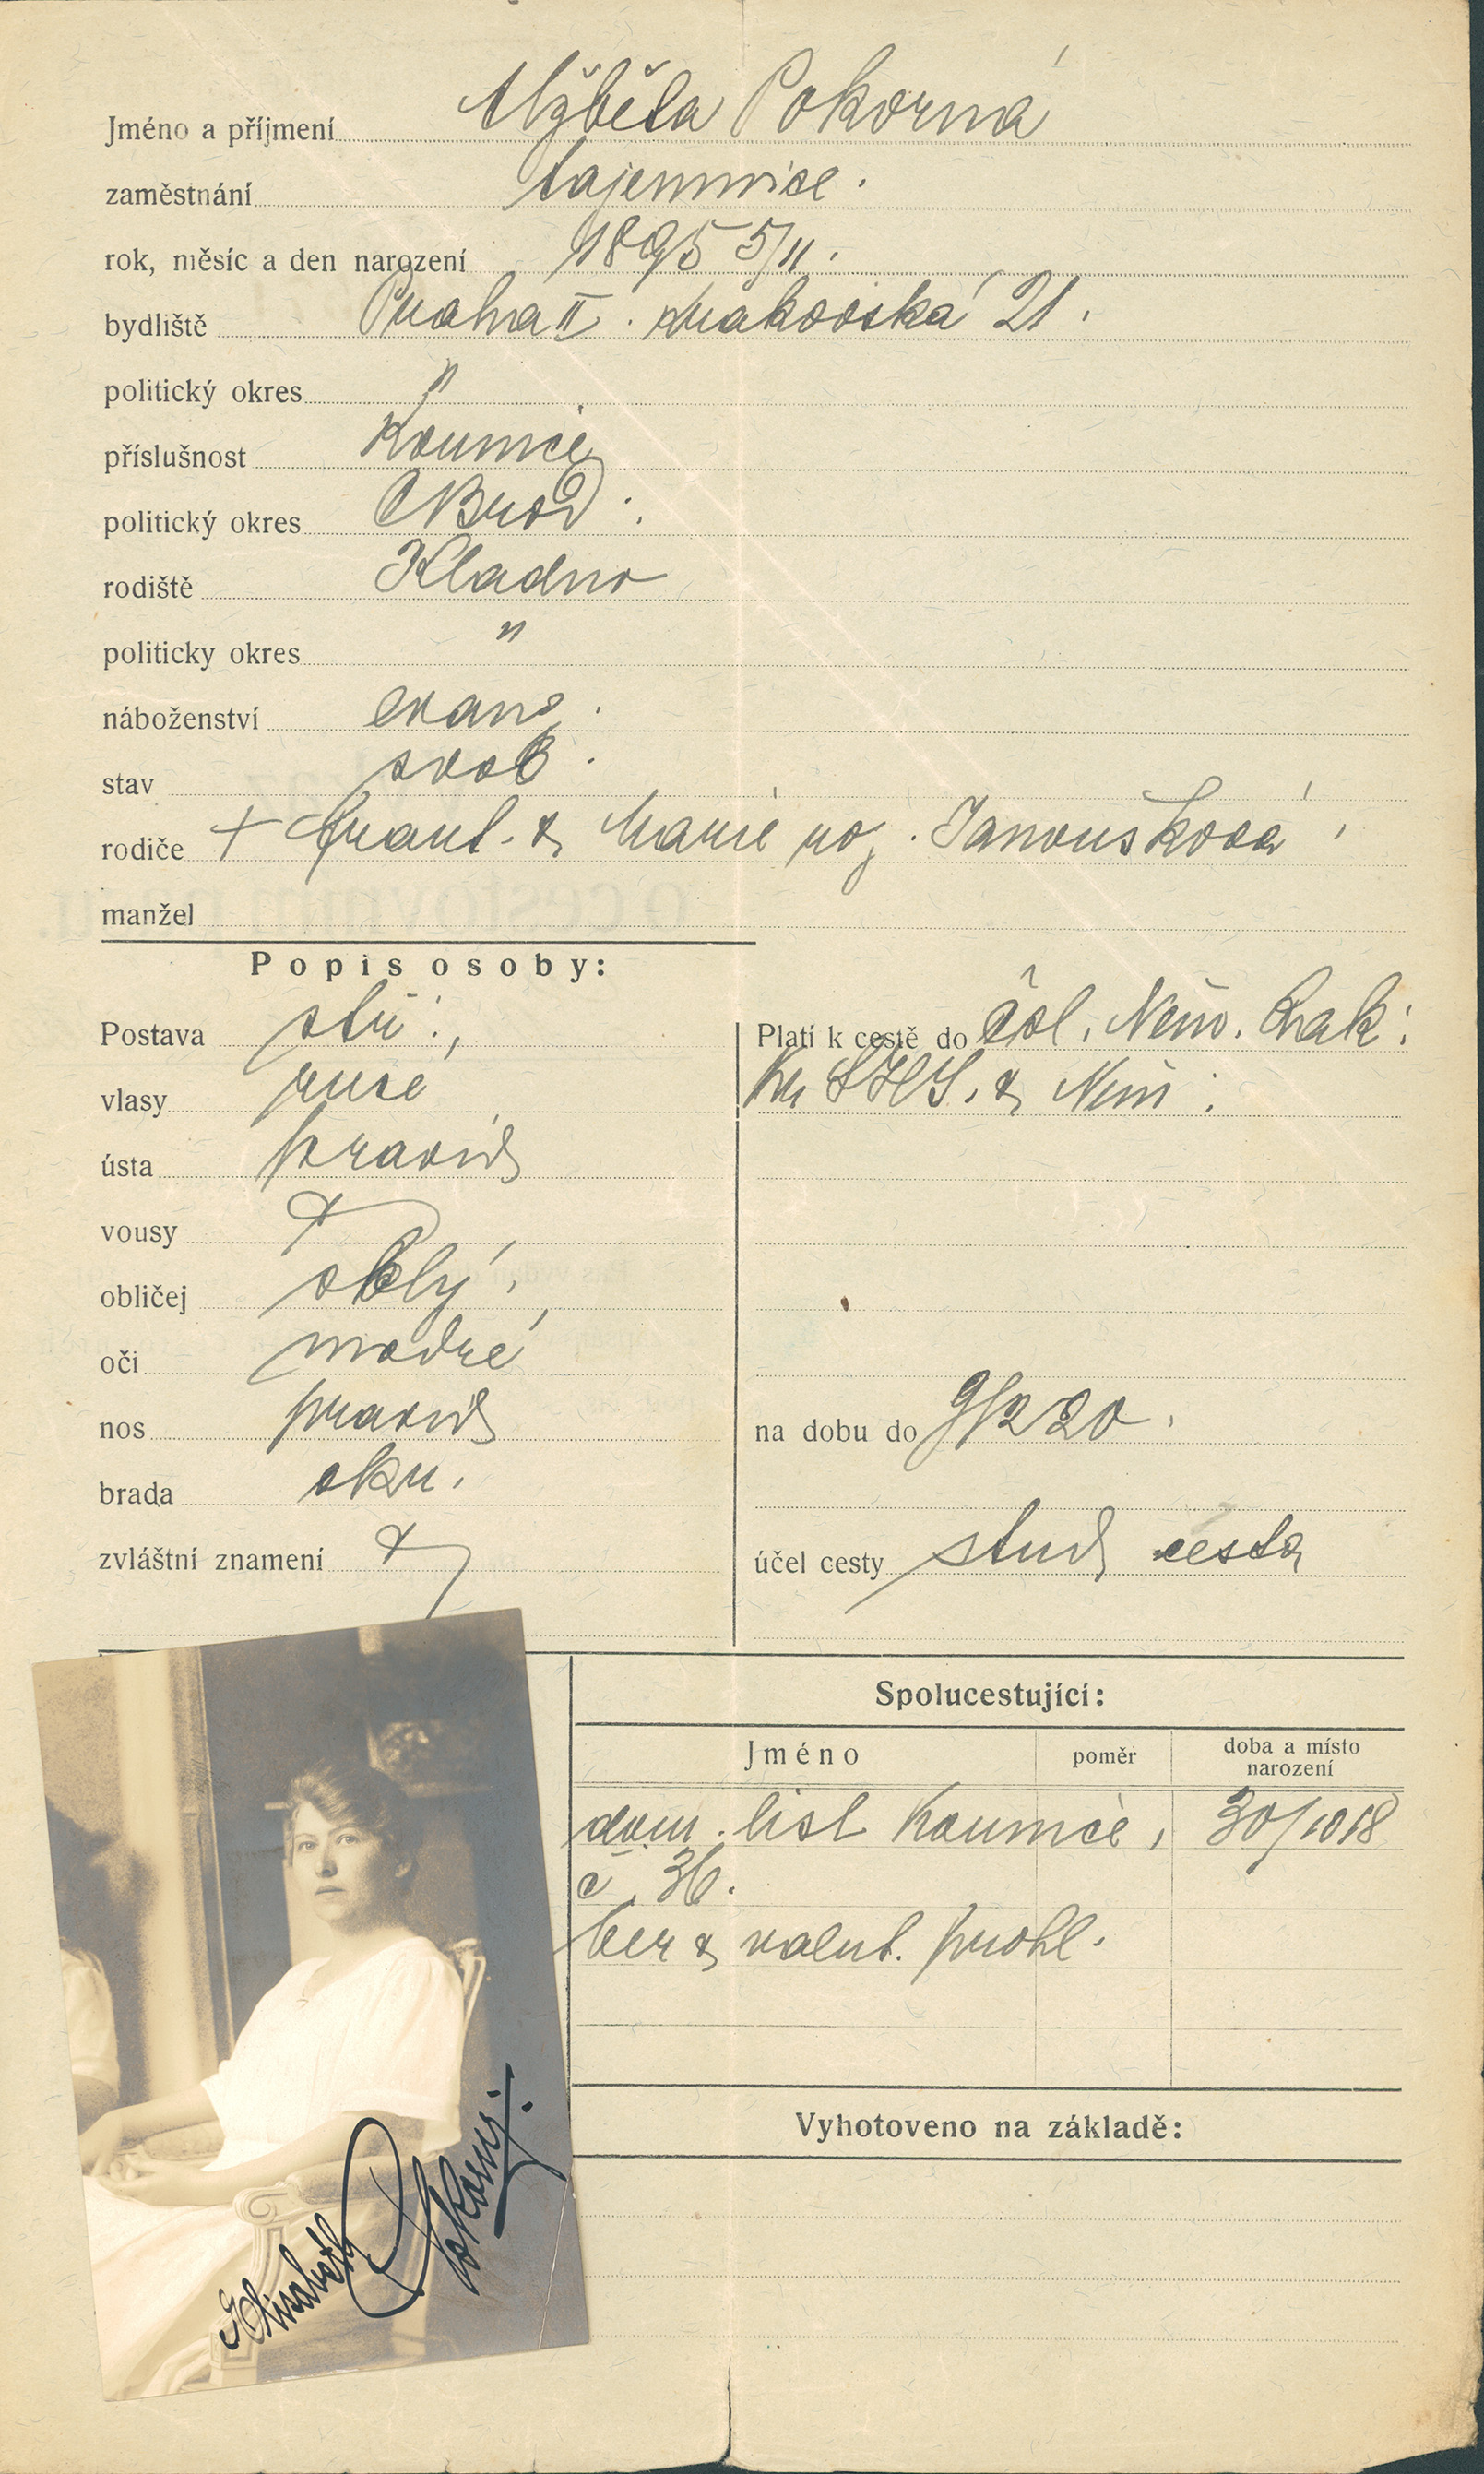 Jméno a příjmení Alžběta Pokorná
zaměstnání tajemnice.
rok, měsíc a den narození 1895 5/11.
bydliště Praha II. Krakovská 21.
politický okres "
příslušnost Kounice
politický okres ČBrod.
rodiště Kladno
politicky okres "
náboženství evang.
stav svob.
rodiče + Frant. & Marie roz. Janoušková
manžel
Popis osoby:
Postava stř.,
vlasy rusé
ústa pravid
vousy
obličej oblý,
oči modré
nos pravid
brada okr.
zvláštní znamení
Platí k cestě do čsl. Něm. Rak.
Kr SHS. & Něm.
na dobu do 9/2 20.
účel cesty stud cesta
Spolucestující:
Jméno poměr doba a místo narození
dom. list Kounice, 30/10 18
č. 36.
ber & valut. prohl.
Vyhotoveno na základě:
Elisabeth Pokorny.